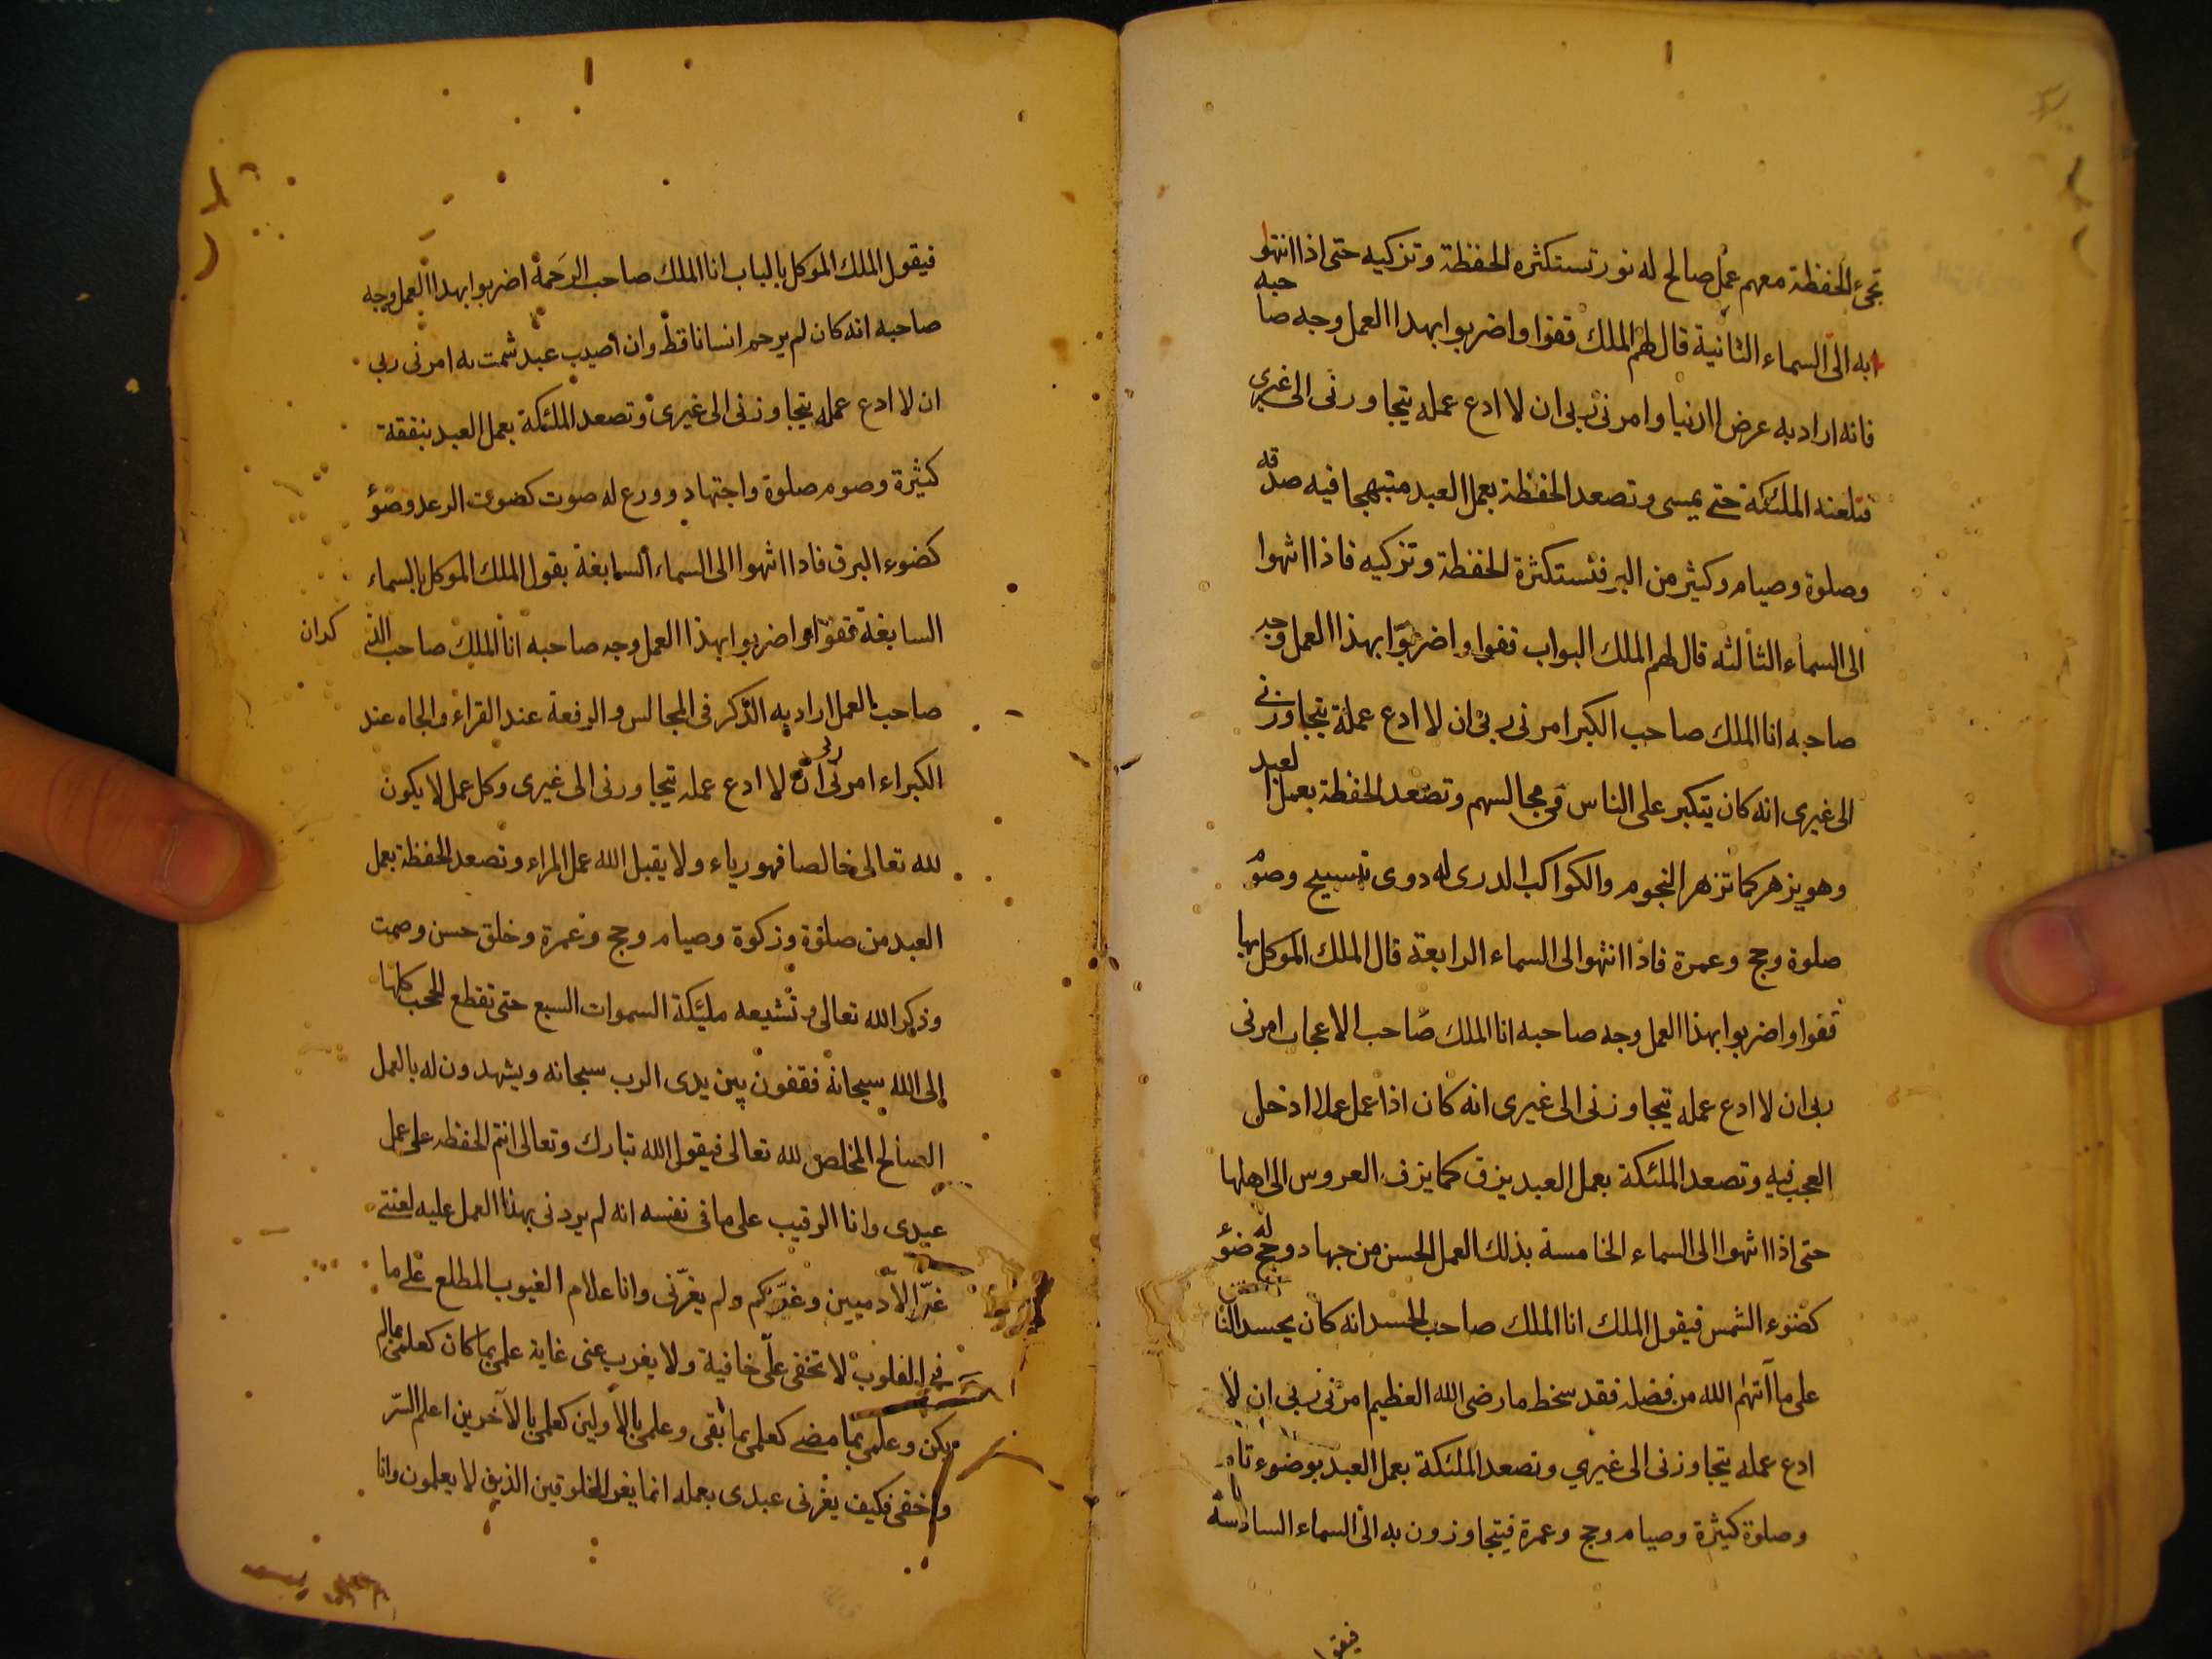 تجئ الحفظة معهم عمل صالح له نور تستكثره الحفظة وتزكيه حتى اذا انتهو
ابه الى السماء الثانية قال لهم الملك قفوا واضربوا بهذا العمل وجه صاحبه
فانه اراد به عرض الدنيا وامرنى ربى ان لا ادع عمله يتجاورنى الى غيرى
فتلعنه الملئكة حتى يمسى وتصعد الحفظة بعمل العبد مبتهجا فيه صدقه
وصلوة وصيام وكثير من البر فتستكثرة الحفظة وتزكيه فاذا انتهوا
الى السماء الثالثه قال لهم الملك البواب قفوا واضربوا بهذا العمل وجه
صاحبه انا الملك صاحب الكبر امرنى ربى ان لا ادع عملة يتجاوزنى
الى غيرى انه كان يتكبر على الناس فى مجالسهم وتصعد الحفظة بعمل العبد
وهو يزهر كما تزهر النجوم والكواكب الدرى له دوى تسبيح وصوم
صلوة وحج وعمرة فاذا انتهوا الى السماء الرابعة قال الملك الموكل بها
قفوا واضربوا بهذا العمل وجه صاحبه انا الملك صاحب الاعجاب امرنى
ربى ان لا ادع عمله يتجاوزنى الى غيرى انه كان اذا عمل عملا ادخل
العجب فيه وتصعد الملئكة بعمل العبد يزف كما يزف العروس الى اهلها
حتى اذا انتهوا الى السماء الخامسة بذلك العمل الحسن من جهاد وحج له ضوء
كضوء الشمس فيقول الملك انا الملك صاحب الحسد انه كان يحسد الناس
على ما آتهم الله من فضله فقد سخط ما رضى الله العظيم امرنى ربى ان لا
ادع عمله يتجاوزنى الى غيري وتصعد الملئكة بعمل العبد بوضوء تام
وصلوة كثيرة وصيام وحج وعمرة فيتجاوزون به الى السماء السادسة
فيقول
فيقول الملك الموكل بالباب انا الملك صاحب الرحمة اضربوا بهذا العمل وجه
صاحبه انه كان لم يرحم انسانا قط وان اصيب عبد شمت به امرنى ربى
ان لا ادع عمله يتجاوزنى الى غيرى وتصعد الملئكة بعمل العبد بنفقة
كثيرة وصوم صلوة واجتهاد وورع له صوت كصوت الرعد وضوؤ
كضوء البرق فاذا انتهوا الى السماء السابعة يقول الملك الموكل بالسماء
السابعة قفوا واضربوا بهذا العمل وجه صاحبه انا الملك صاحب الذ
صاحب العمل اراد به الذكر فى المجالس والرفعة عند القراء والجاه عند
الكبراء امرنى ربى ان لا ادع عمله يتجاورنى الى غيرى وكل عمل لا يكون
لله تعالى خالصا فهو رياء ولا يقبل الله عمل المراء وتصعد الحفظة بعمل
العبد من صلوة وزكوة وصيام وحج وعمرة وخلق حسن وصمت
وذكر الله تعالى وتشيعه مليئكة السموات السبع حتى تقطع الحجب كلها
الى الله سبحانه فقفون بين يدى الرب سبحانه ويشهدون له بالعمل
الصالح المخلص لله تعالى فيقول الله تبارك وتعالى انتم الحفظه على عمل
عبدى وانا الرقيب على ما فى نفسه انه لم يردنى بهذا العمل عليه لعنتى
غرّ الادميين وغرّكم ولم يغرّنى وانا علام الغيوب المطلع على ما
فى القلوب لا تخفى علىّ خافية ولا يعزب عنى غاية علمى بما كان كعلمى بما لم
يكن وعلمى بما مضى كعلمى بما بقى وعلمى بالاولين كعلمى بالآخرين اعلم السّر
واخفى فكيف يغرنى عبدى بعمله انما يغر المخلوقين الذين لا يعلمون وانا